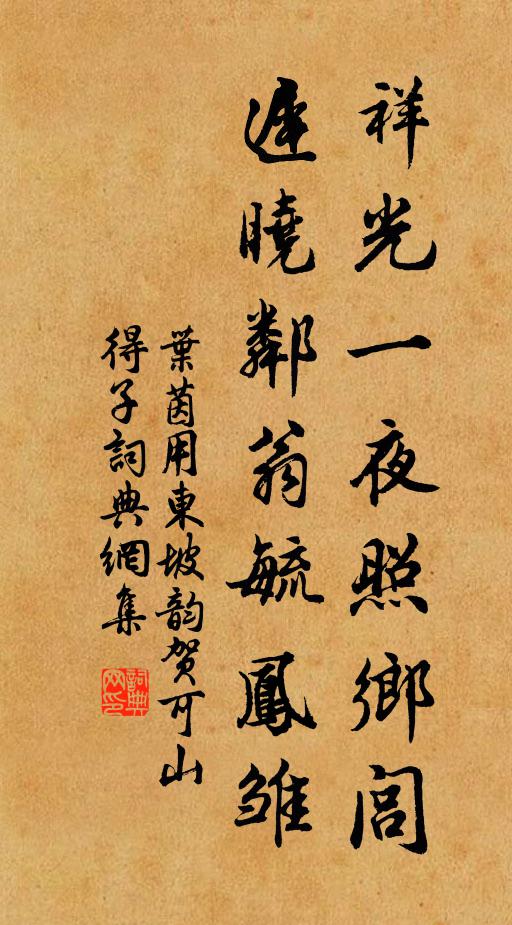 祥光一夜照鄉閭
遲曉鄰翁毓鳳雛
葉茵用東坡韵贺可山
得子詞典網集
詞典网印